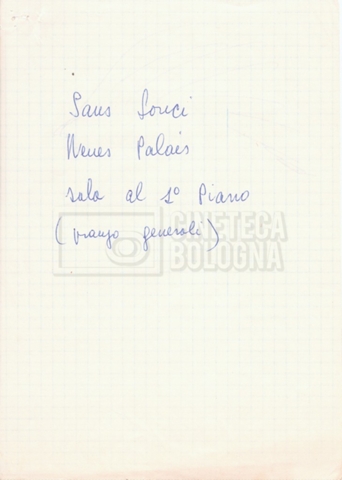 Sans Souci
Neues Palais
sala al 1º Piano
(pranzo generali)
CINETECA
BOLOGNA